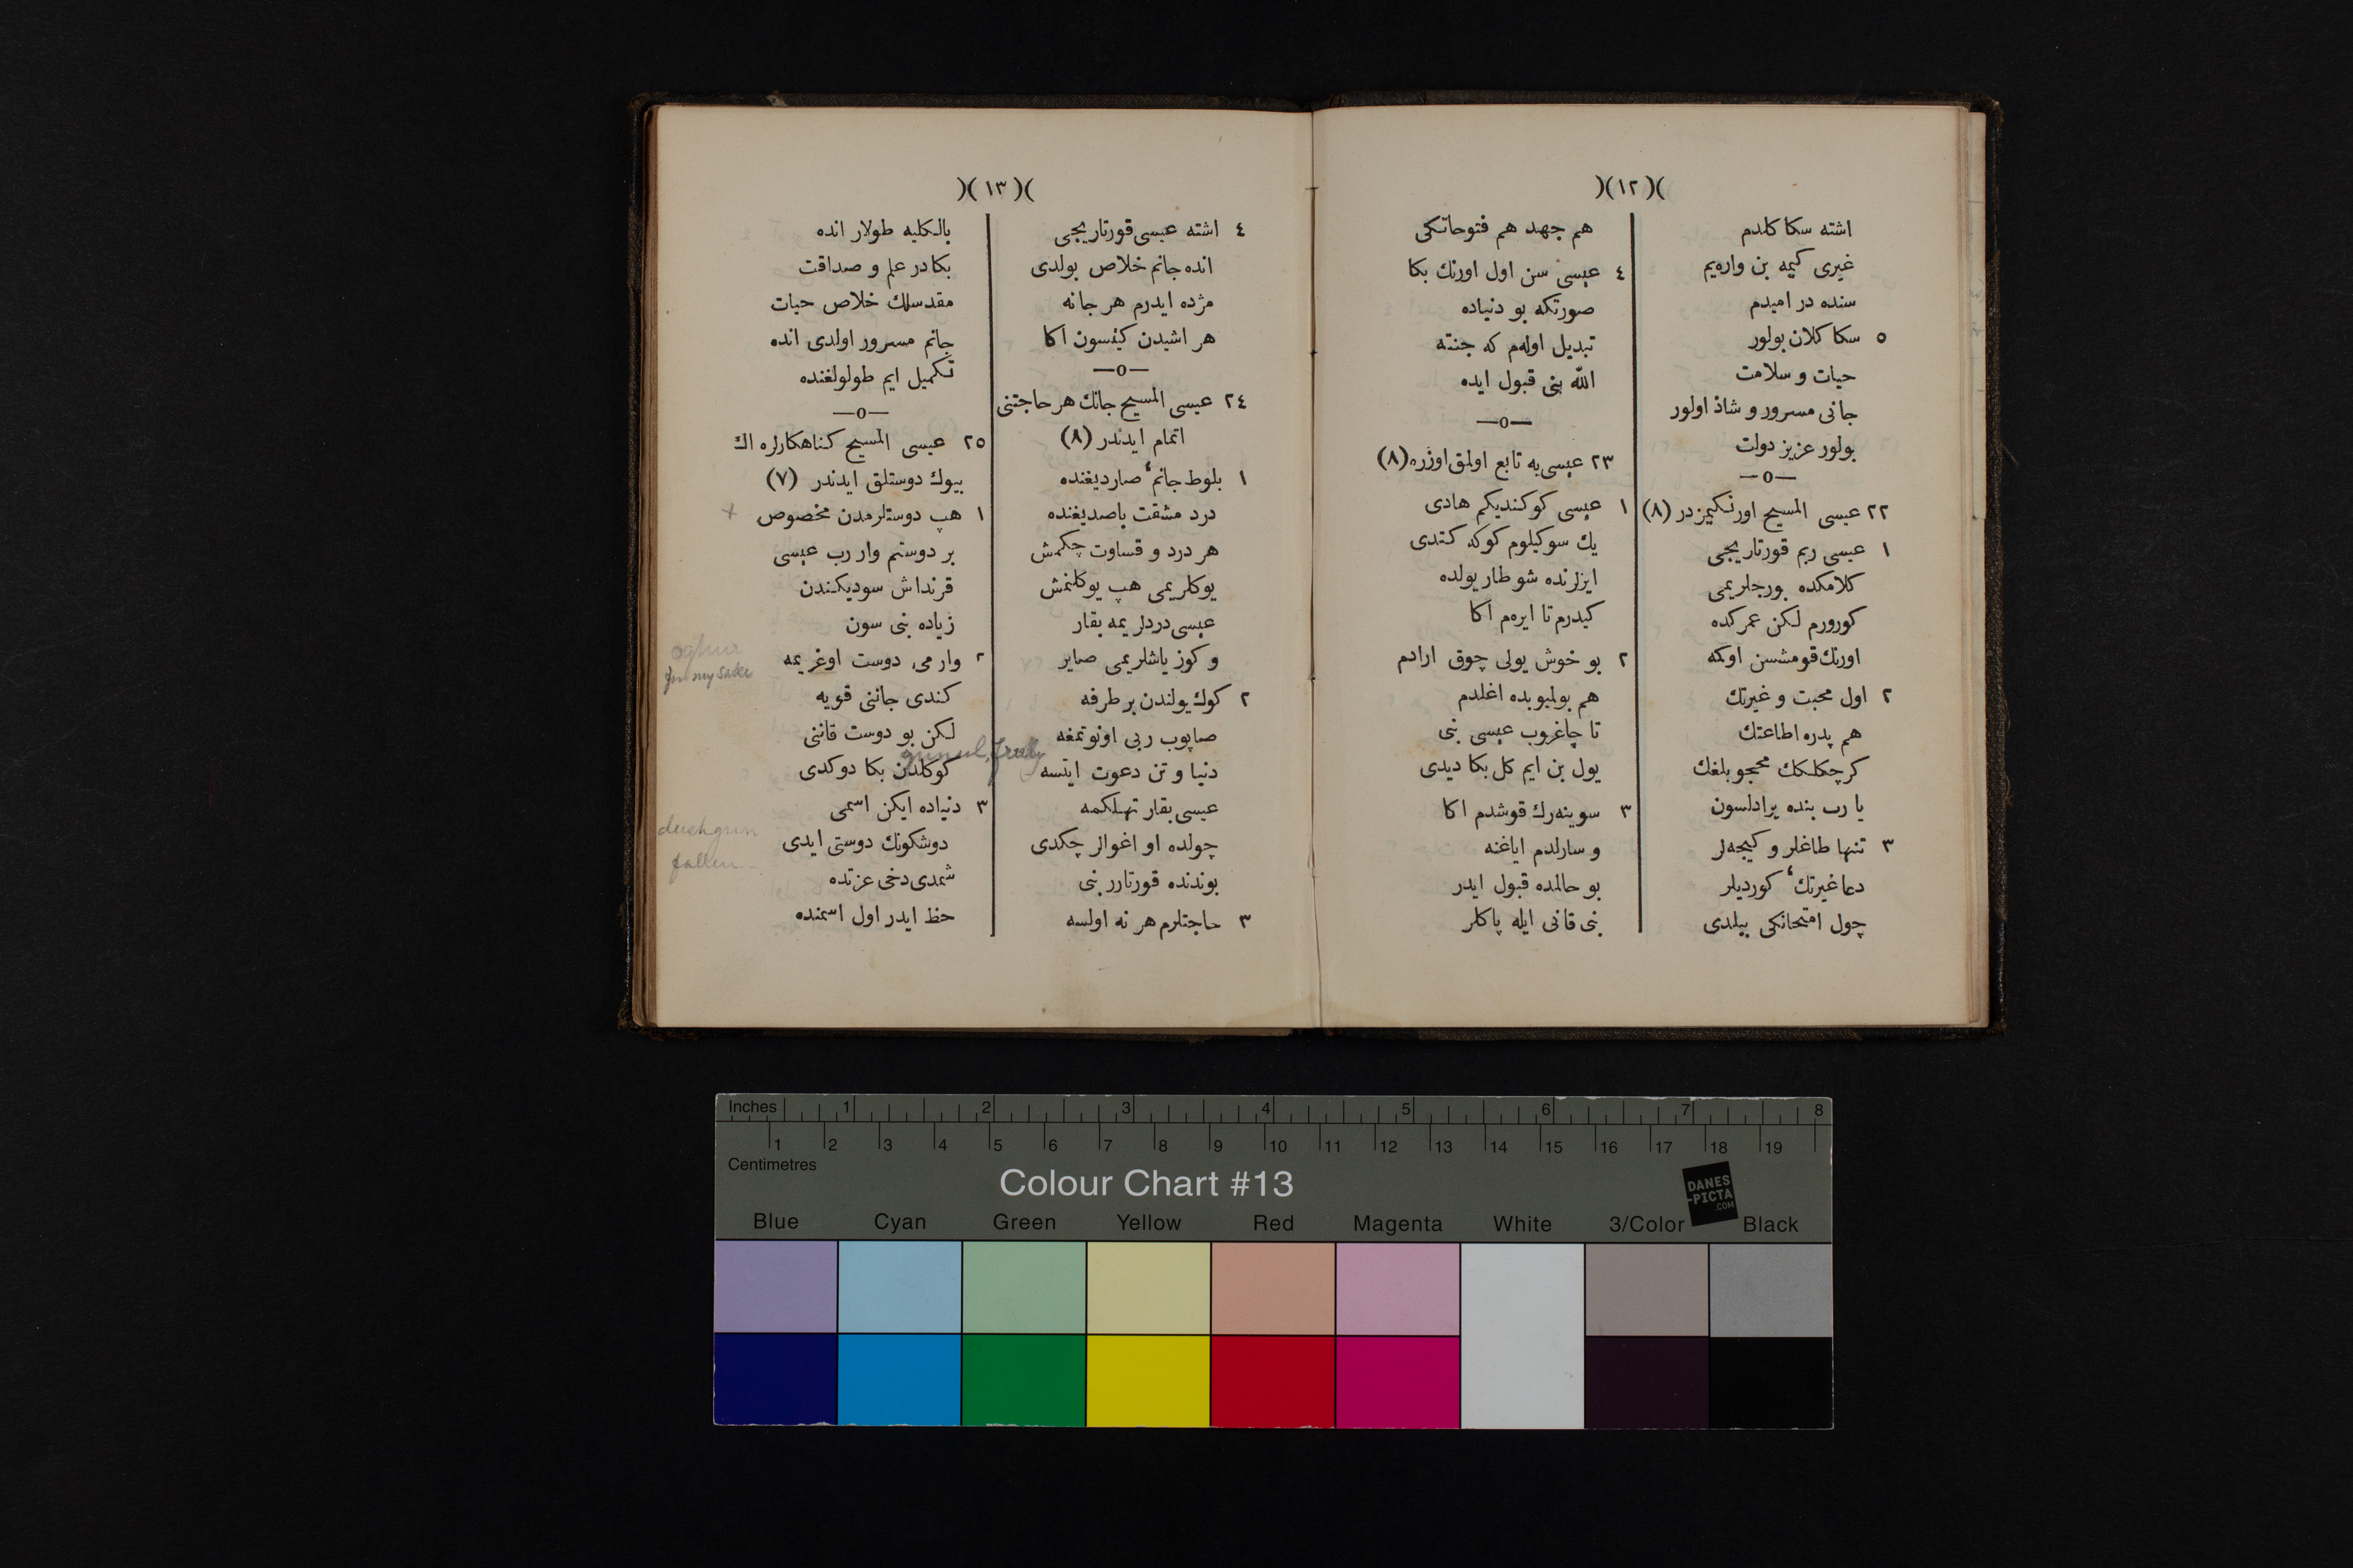 )(١٢)(
اشته سكا كلدم
غيری كيمه بن وارەيم
سنده در اميدم
٥ سكا كلان بولور
حيات و سلامت
جانی مسرور و شاذ اولور
بولور عزيز دولت
—o—
٢٢ عيسی المسيح اورنكيمزدر (٨)
١ عيسی ربم قورتاريجی
كلامكده بورجلريمی
كورورم لكن عمركده
اورنك قومشسن اوكمه
٢ اول محبت و غيرتك
هم پدره اطاعتك
كرچكلكك محجوبلغك
يا رب بنده يرادلسون
٣ تنها طاغلر و كيجەلر
دعا غيرتك كورديلر
چول امتحانكی بيلدی
هم جهد هم فتوحاتكی
٤ عيسی سن اول اورنك بكا
صورتكه بو دنياده
تبديل اولەم كه جنته
اللّه بنی قبول ايده
—o—
٢٣ عيسی‌يه تابع اولمق اوزره (٨)
١ عيسی كوكنديكم هادی
يك سوكيلوم كوكه كتدی
ايزلرنده شو طار يولده
كيدرم تا ايرەم اكا
٢ بو خوش يولی چوق ارادم
هم بولميوبده اغلدم
تا چاغروب عيسی بنی
يول بن ايم كل بكا ديدی
٣ سوينەرك قوشدم اكا
و سارلدم اياغنه
بو حالمده قبول ايدر
بنی قانی ايله پاكلر
)(١٣)(
٤ اشته عيسی قورتاريجی
انده جانم خلاص بولدی
مژده ايدرم هر جانه
هر اشيدن كيتسون اكا
—o—
٢٤ عيسی المسيح جانك هر حاجتنی
اتمام ايدندر (٨)
١ بلوط جانم صارديغنده
درد مشقت باصديغنده
هر درد و قساوت چكمش
يوكلريمی هپ يوكلنمش
عيسی دردلريمه بقار
و كوز ياشلريمی صاير
٢ كوك يولندن بر طرفه
صاپوب ربی اونوتمغه
دنيا و تن دعوت ايتسه
عيسی بقار تهلكمه
چولده او اغوالر چكدی
بوندنده قورتارر بنی
٣ حاجتلرم هر نه اولسه
بالكليه طولار انده
بكادر علم و صداقت
مقدسلك خلاص حيات
جانم مسرور اولدی انده
تكميل ايم طولولغنده
—o—
٢٥ عيسی المسيح كناهكارلره اك
بيوك دوستلق ايدندر (٧)
١ هپ دوستلرمدن مخصوص
بر دوستم وار رب عيسی
قرنداش سوديكندن
زياده بنی سون
٢ وارمی دوست اوغريمه
كندی جاننی قويه
لكن بو دوست قاننی
كوكلدن بكا دوكدی
٣ دنياده ايكن اسمی
دوشكونك دوستی ايدی
شمدی دخی عزتده
حظ ايدر اول اسمنده
oghur
for my sake
gunul, freely
dushgun
fallen
Inches 1 2 3 4 5 6 7 8
1 2 3 4 5 6 7 8 9 10 11 12 13 14 15 16 17 18 19
Centimetres
Colour Chart #13
DANES
-PICTA
.COM
Blue Cyan Green Yellow Red Magenta White 3/Color Black